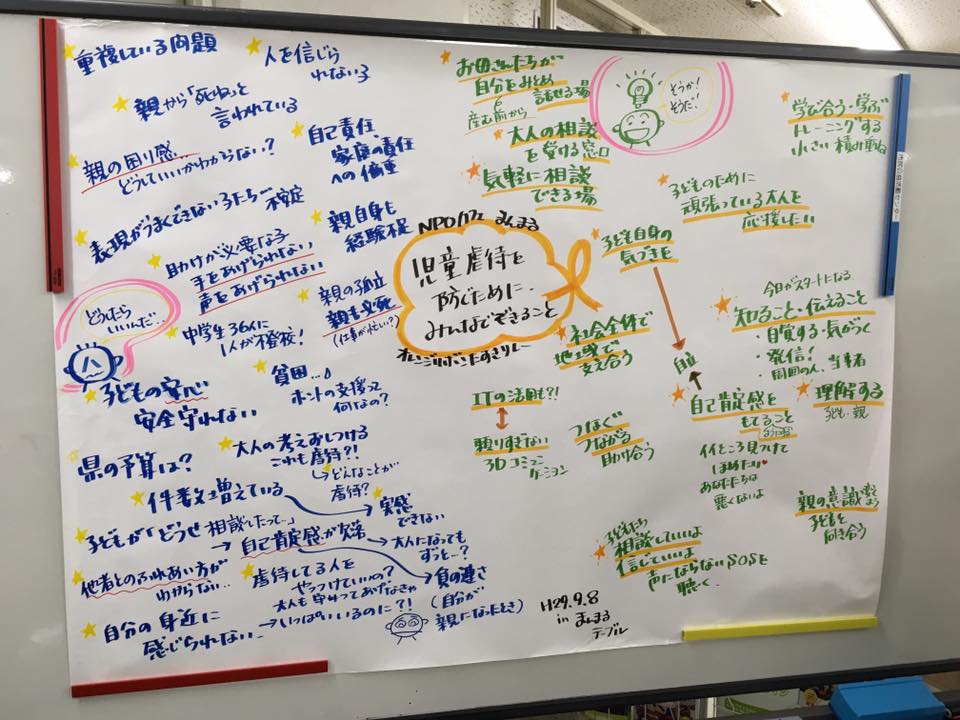 重複している問題
人を信じら
れない子
親から「死ね」と
言われている
自己責任
家庭の責任
への偏重
親の困り感…
どうしていいかわからない?
表現がうまくできない子たち…
不安定
親自身も
経験不足
助けが必要な子
手をあげられない
声をあげられない
親の孤立
親も必死
(仕事が忙しい?)
どうしたら
いいんだ…
中学生36人に
1人が不登校!
子どもの安心
安全守れない
貧困…
ホントの支援って
何なの?
県の予算は?
大人の考えおしつける
これも虐待?!
どんなことが
虐待?
件数も増えている
実感
できない
子どもが「どうせ相談したって…」
→自己肯定感が欠落
大人になっても
ずっと…?
他者とのふれあい方が
わからない…
虐待してる人を
やっつけていいの?
大人も守ってあげなきゃ
いっぱいいるのに?!
負の連さ
(自分が
親になったとき)
自分の身近に
感じられない…
NPO
まんまる
児童虐待を
防ぐために、
みんなでできること
オレンジリボンたすきリレー
お母さんたちが
自分をみとめ
話せる場
産む前から
大人の相談
を受ける窓口
気軽に相談
できる場
そうか!
そうだ!
学び合う・学ぶ
トレーニングする
小さい積み重ね
子どものために
頑張っている大人を
応援したい
子ども自身の
気づきを
自立
社会全体で
地域で
支え合う
今日がスタートになる
知ること・伝えること
・自覚する・気がつく
・発信!
・周囲の人、当事者
理解する
子ども・親
自己肯定感を
もてること
イイところ見つけて
ほめたり
あなたたちは
悪くないよ
ITの活用も?!
頼りすぎない
3Dコミュニ
ケーション
つなぐ
つながる
助け合う
親の意識
子どもと
向き合う
子どもたち
相談していいよ
信じていいよ
声にならないSOSも
聴く。
H29.9.8
in まんまる
テーブル